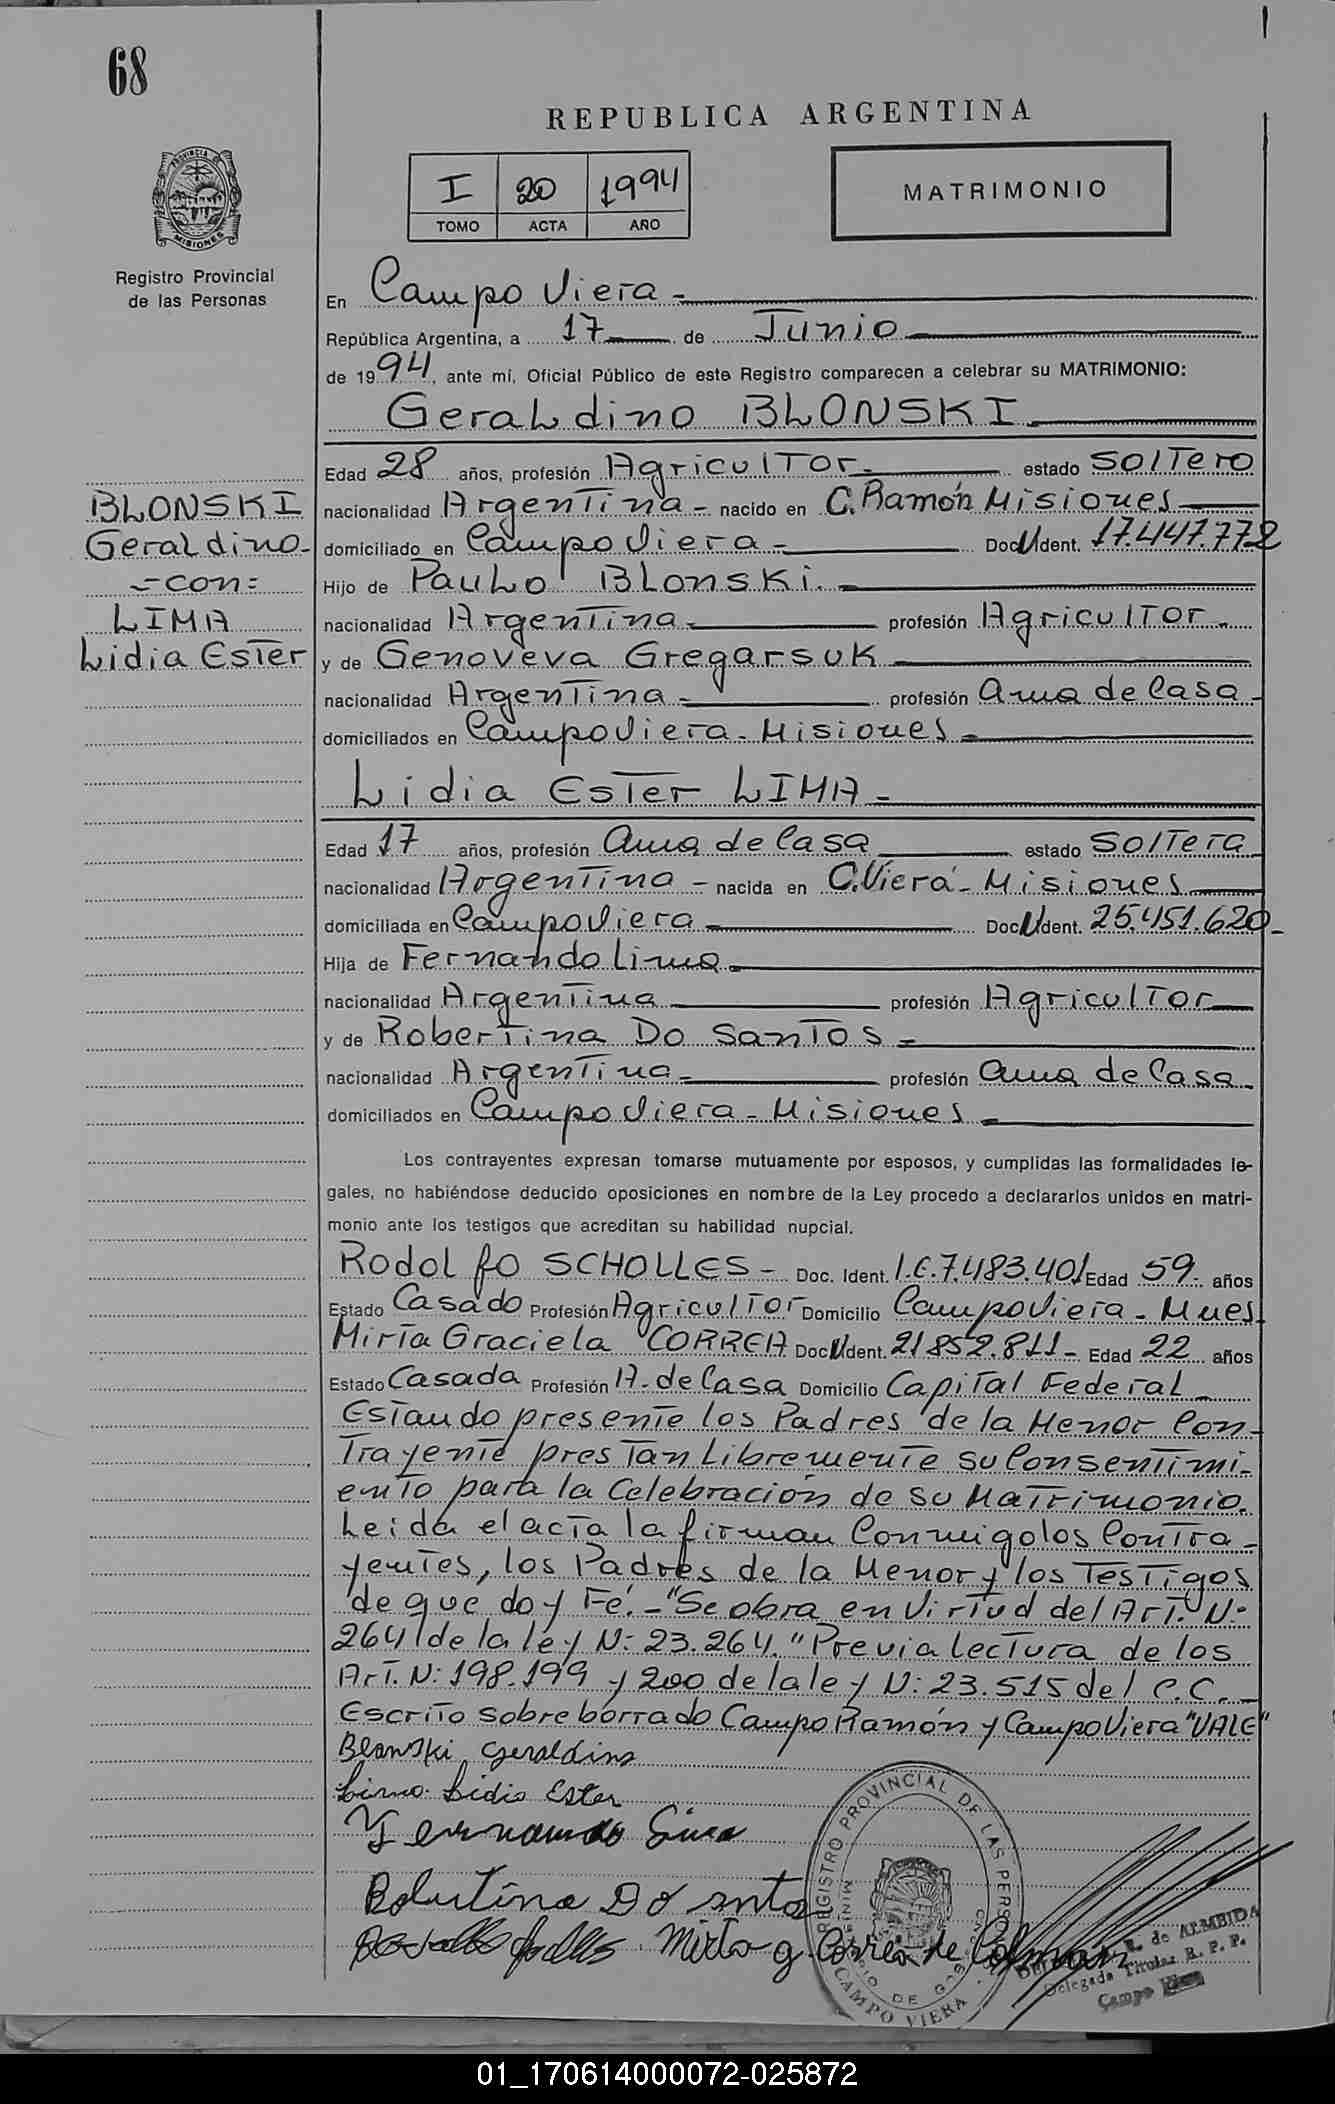 68
REPUBLICA ARGENTINA
I 20 1994
TOMO ACTA AÑO
MATRIMONIO
PROVINCIA DE
MISIONES
Registro Provincial
de las Personas
En Campo Viera
República Argentina, a 17 de Junio
de 1994, ante mí, Oficial Público de este Registro comparecen a celebrar su MATRIMONIO:
Geraldino BLONSKI
Edad 28 años, profesión Agricultor estado Soltero
nacionalidad Argentina nacido en C. Ramón Misiones
domiciliado en Campo Viera Doc U Ident. 17.447.772
Hijo de Paulo Blonski.
nacionalidad Argentina profesión Agricultor
y de Genoveva Gregarsuk
nacionalidad Argentina profesión Ama de Casa
domiciliados en Campo Viera - Misiones
BLONSKI
Geraldino-
=con=
LIMA
Lidia Ester
Lidia Ester LIMA
Edad 17 años, profesión Ama de Casa estado Soltera
nacionalidad Argentina - nacida en C. Viera - Misiones
domiciliada en Campo Viera Doc U Ident. 25.451.620
Hija de Fernando Lima
nacionalidad Argentina profesión Agricultor
y de Robertina Do Santos
nacionalidad Argentina profesión Ama de Casa
domiciliados en Campo Viera - Misiones
Los contrayentes expresan tomarse mutuamente por esposos, y cumplidas las formalidades le-
gales, no habiéndose deducido oposiciones en nombre de la Ley procedo a declararlos unidos en matri-
monio ante los testigos que acreditan su habilidad nupcial.
Rodolfo SCHOLLES - Doc. Ident. 7.483.401 Edad 59 años
Estado Casado Profesión Agricultor Domicilio Campo Viera - Mnes
Mirta Graciela CORREA Doc U Ident. 21852.811 - Edad 22 años
Estado Casada Profesión A. de Casa Domicilio Capital Federal
Estando presente los Padres de la Menor Con-
trayente prestan Libremente su Consentimi-
ento para la Celebración de su Matrimonio.
Leida el acta la firman Conmigo los Contra-
yentes, los Padres de la Menor y los Testigos
de que doy Fé. - "Se obra en Virtud del Art. N:
264 de la ley N: 23.264. "Previa lectura de los
Art. N: 198.199 y 200 de la ley N: 23.515 del C.C. -
Escrito sobre borrado Campo Ramón y Campo Viera "VALE"
Blonski Geraldino
Lima Lidia Ester
Fernando Lima
Robertina Do
Mirta G. Correa de Colman
REGISTRO PROVINCIAL DE LAS PERSONAS
MINISTERIO DE GOBIERNO
CAMPO VIERA
R. de ALMEIDA
Delegada Titular R. P. P.
Campo Viera
01_170614000072-025872